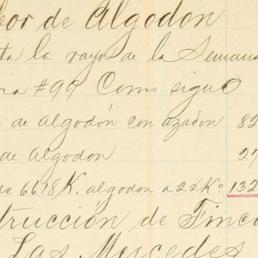 bor de Algodon
ta la raya de la Semana
ria #99 Como sigue
de algodón con azadon 82
de algodon 27
6618 K. algodon a 2¢ K° 132
trucción de Finc
Las Mercedes